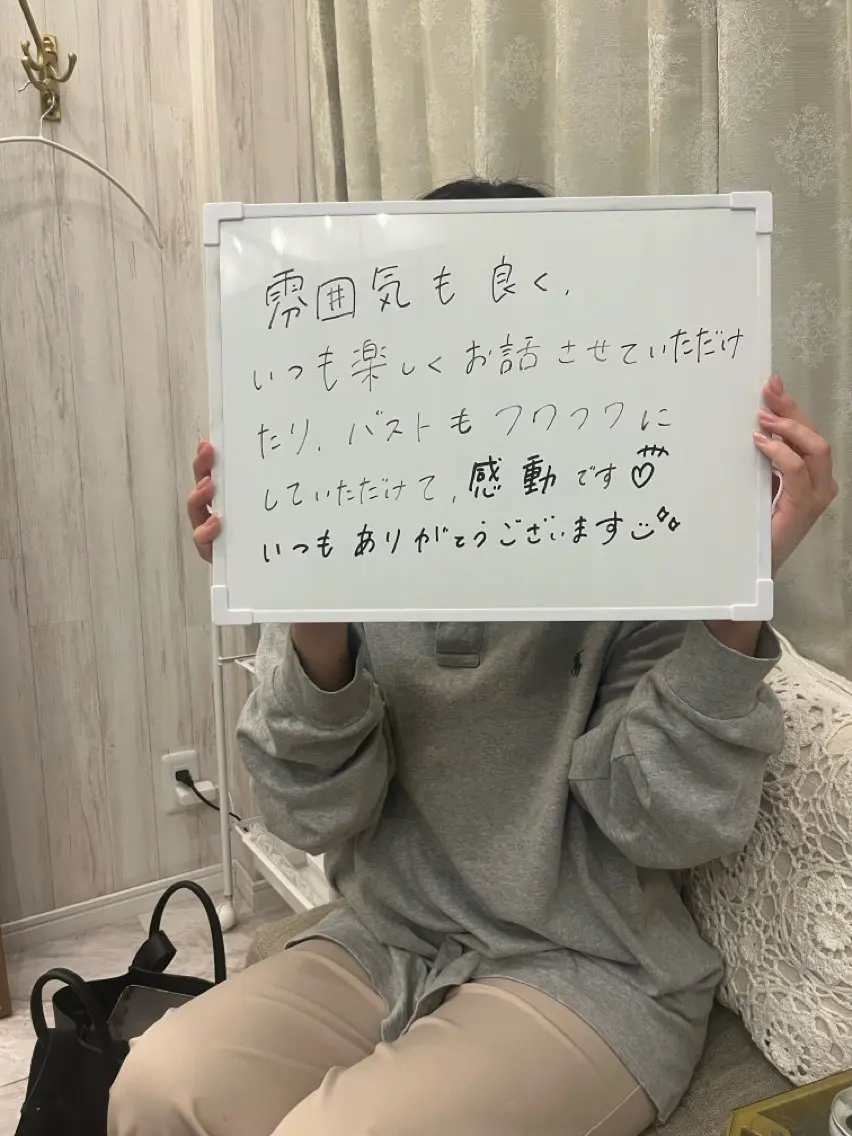 雰囲気も良く、
いつも楽しくお話させていただけ
たり、バストもフワフワに
していただけて、感動です♡
いつもありがとうございます